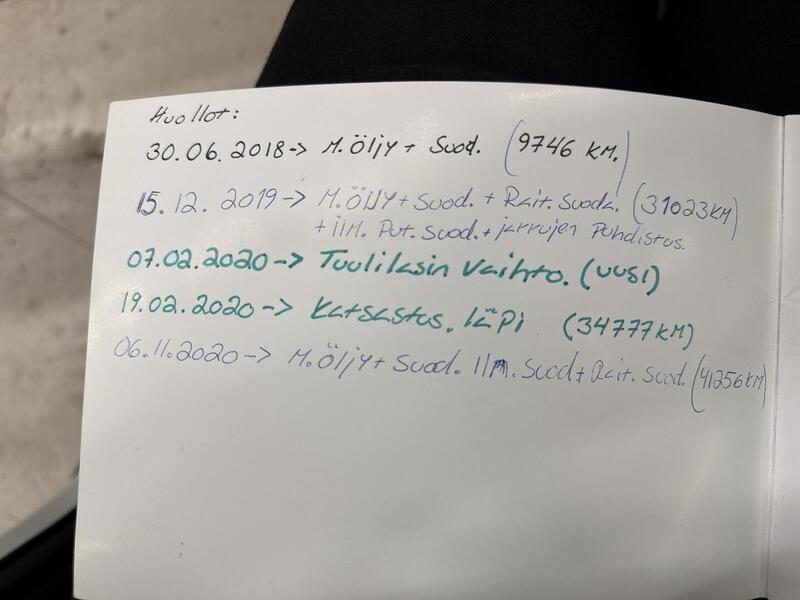 Huollot:
30.06.2018-> M.Öljy + Suod. (9746 KM.)
15.12.2019-> M.Öljy + Suod. + Rait. Suoda. (31023KM)
+ ilm. Put. Suod. + jarrujen Puhdistus.
07.02.2020-> Tuulilasin Vaihto. (UUSI)
19.02.2020-> Katsastus. läpi (34777KM)
06.11.2020-> M.Öljy + Suod. ilm. Suod + Rait. Suod. (41256KM)